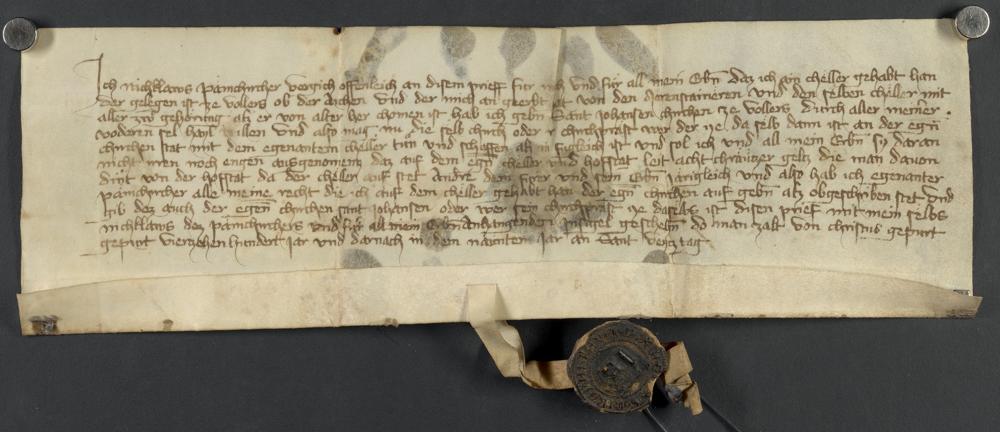 Ich Nichklaws Pamchircher vergich offenleich an disem prieff für mich und für all mein Erbñ daz ich ain cheller gehabt han
der gelegen ist ze vollers ob der Aichen und der mich an geerbt ist von den und den selben cheller mit
aller zue gehörung als er von alter her chomen ist hab ich gebñ Sant Johansen chirchen ze vollers durch aller meiner
vodern sel hail willen und also mag nu die selb chirch oder ir chirchprast wer der ye da selb dann ist an der egñ
chirchen stat mit dem egenanten cheller tün und schaffen als in fügleich ist und sol ich und all mein Erbñ sy daran
nicht irren noch engen ausgenomen daz auf dem egñ cheller und hofstat leit acht chrawczer gelcz die man davon
dint von der hofstat da der cheller auf stet Andre dem und sein Erbñ jarigleich und also hab ich egenanter
Pamchircher alle meine recht die ich auf dem cheller gehabt han der egñ chirchen auf gebñ als obgeschriben stet und
gib des auch der egeñ chirchen sant Johansen oder wer sein ye daselbs ist disen prief mit mein selbs
nichklaws dez Pamchirchers und für all mein Erbñ anhangenden Insigel geschehñ do man zalt von christus gepurt
gepurt vierzehenhundert Jar und darnach in dem Jar an Sant veicz tag